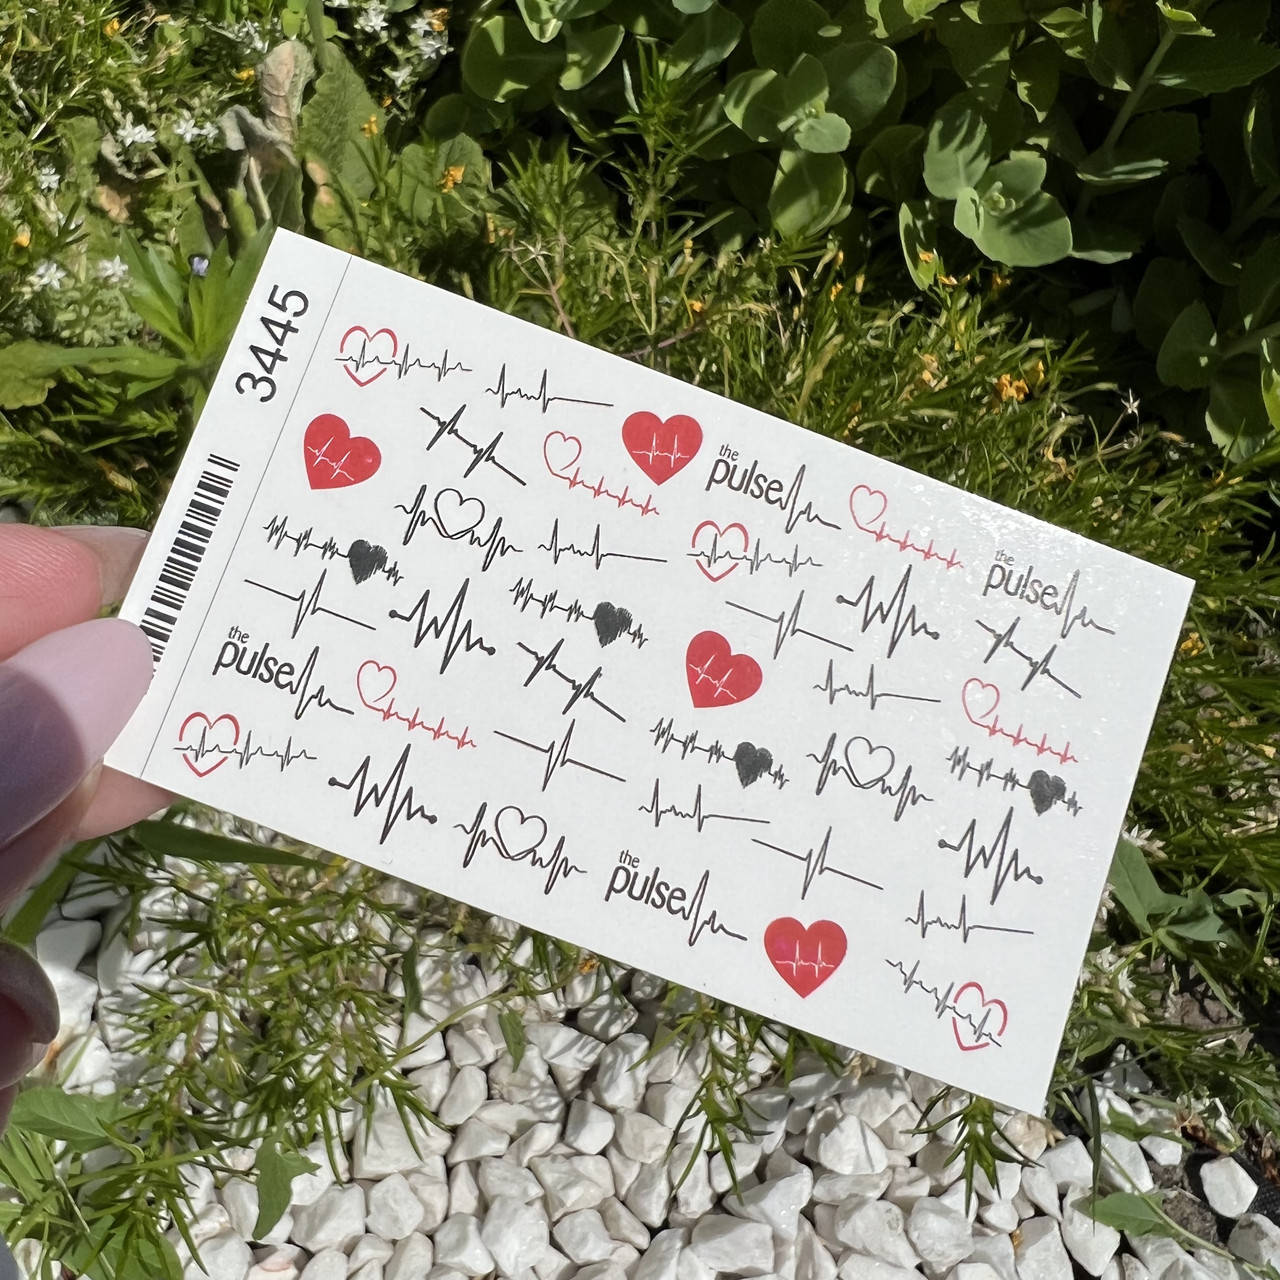 3445
the
pulse
the
pulse
the
pulse
the
pulse